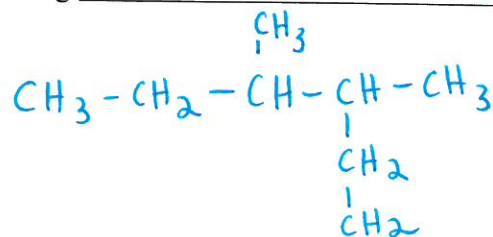 CH3
CH3 - CH2 - CH - CH - CH3
CH2
CH2